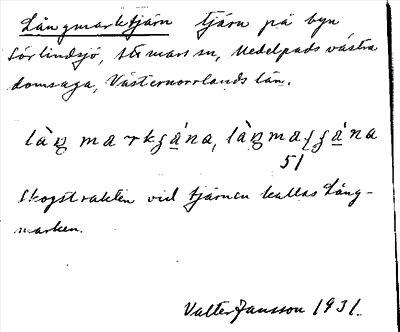 Långmarktjärn tjärn på byn
Sörlindsjö, st mars sn, Medelpads västra
domsaga, Västernorrlands län.
làŋ markʒána, làŋmaʒána
51
Skogstrakten vid tjärnen kallas Lång-
marken.
Valter Jansson 1931.